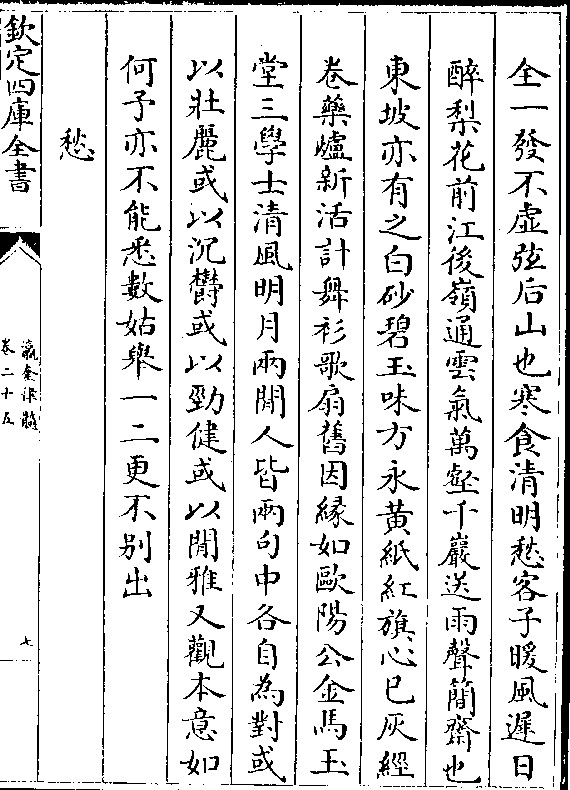 全一發不虛弦后山也寒食清明愁客子暖風遲日
醉梨花前江後嶺通雲氣萬壑千巖送雨聲簡齋也
東坡亦有之白砂碧玉味方永黃紙紅旗心已灰經
卷藥爐新活計舞衫歌扇舊因緣如歐陽公金馬玉
堂三學士清風明月兩閒人皆兩句中各自為對或
以壯麗或以沉鬱或以勁健或以閒雅又觀本意如
何予亦不能悉數姑舉一二更不别出
愁
欽定四庫全書
瀛奎律髓
卷二十五
七